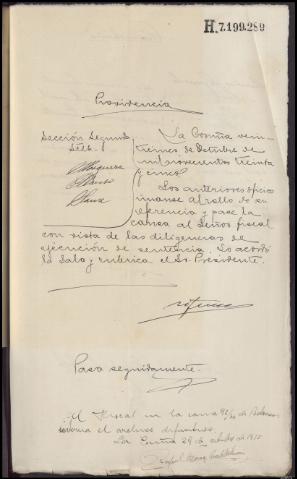 H.7.199.289
Providencia
Sección Segunda
La Coruña vein
de Octubre de
mil novecientos treinta
y cinco
Los anteriores oficios
únanse al rollo de su
referencia y pase la
causa al Señor fiscal
con vista de las diligencias de
ejecución de sentencia. Lo acordó
la Sala y rubrica el Sr. Presidente.
Pasa seguidamente.
El Fiscal en la causa de
el archivo
La Coruña 29 de octubre de